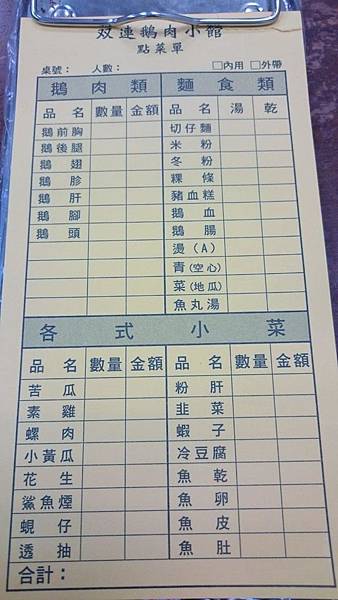 双連鵝肉小館
點菜單
桌號： 人數： □內用 □外帶
鵝肉類 麵食類
品名 數量 金額 品名 湯 乾
鵝前胸 切仔麵
鵝後腿 米粉
鵝翅 冬粉
鵝胗 粿條
鵝肝 豬血糕
鵝腳 鵝血
鵝頭 鵝腸
燙(A)
青(空心)
菜(地瓜)
魚丸湯
各式小菜
品名 數量 金額 品名 數量 金額
苦瓜 粉肝
素雞 韭菜
螺肉 蝦子
小黃瓜 冷豆腐
花生 魚乾
鯊魚煙 魚卵
蜆仔 魚皮
透抽 魚肚
合計：